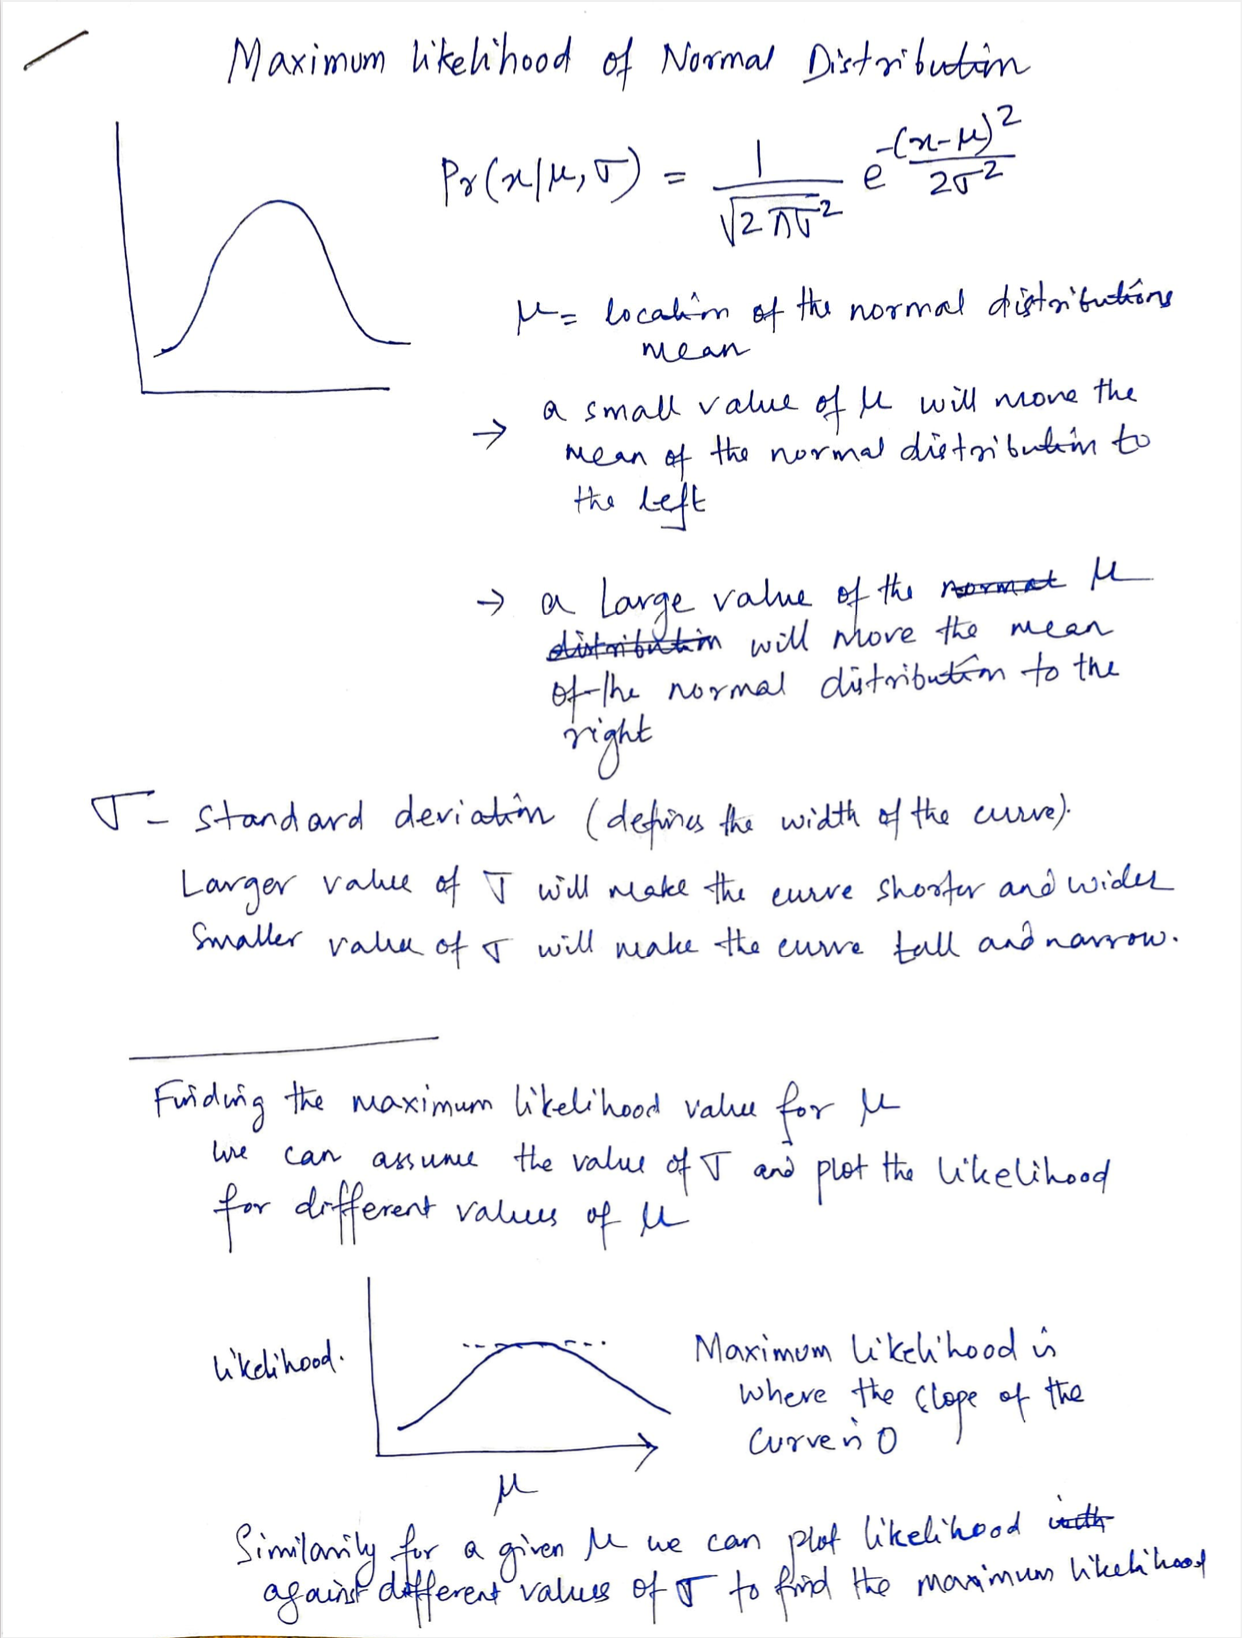 Maximum likelihood of Normal Distribution
Pr(x|μ, σ) = 1/√2πσ² e^-(x-μ)²/2σ²
μ = location of the normal distributions
mean
→ a small value of μ will move the
mean of the normal distribution to
the left
→ a large value of the normal μ
distribution will move the mean
of the normal distribution to the
right
σ - standard deviation (defines the width of the curve).
Larger value of σ will make the curve shorter and wider
Smaller value of σ will make the curve tall and narrow.
Finding the maximum likelihood value for μ
we can assume the value of σ and plot the likelihood
for different values of μ
likelihood.
Maximum likelihood is
where the slope of the
curve is 0
μ
Similarily for a given μ we can plot likelihood with
against different values of σ to find the maximum likelihood